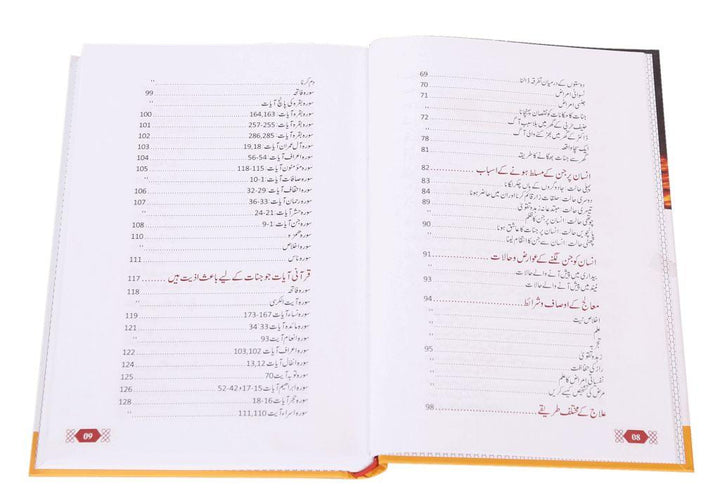 دوستوں کے درمیان تفرقہ ڈالنا 69
نسوانی امراض 70
جنسی امراض 71
جنات کا مکانات کو نقصان پہنچانا "
حنیف عربی کے گھر میں بلا سبب آگ 72
ڈاکٹر کے گھر میں بھڑکنے والی آگ 78
ایک سچا واقعہ 81
گھر سے جنات بھگانے کا طریقہ "
انسان پر جن کے مسلط ہونے کے اسباب 82
پہلی حالت: جادوگروں کے ہاں چکر لگانا 83
دوسری حالت: حلقات ذکر قائم کرنا اور ان میں حاضر ہونا "
تیسری حالت: مبتدعانہ زہد و تقویٰ
چوتھی حالت: انسان پر جن کا ظلم
پانچویں حالت: انسان پر جنات کا عاشق ہونا
چھٹی حالت: انسان سے جن کا انتقام لینا
انسان کو جن لگنے کے عوارض و حالات 91
بیداری میں پیش آنے والے حالات "
نیند میں پیش آنے والے حالات
معالج کے اوصاف و شرائط 94
اخلاص نیت "
علم
زہد و تقویٰ
راز کی حفاظت
نفسیاتی امراض کا علم
مرض کی تشخیص کیسے کریں
علاج کے مختلف طریقے 98
08
دم کرنا "
سورہ فاتحہ 99
سورہ بقرہ کی پانچ آیات "
سورہ بقرہ آیات: 164,163 100
سورہ بقرہ آیات: 257-255 101
سورہ بقرہ آیات: 286,285 102
سورہ آل عمران آیات: 19,18 103
سورہ اعراف آیات: 56-54 104
سورہ مؤمنون آیات: 118-115 105
سورہ صافات آیات: 10-1 "
سورہ احقاف آیات: 32-29 106
سورہ رحمان آیات: 36-33 107
سورہ حشر آیات: 24-21 "
سورہ جن آیات: 9-1 108
سورہ ھمزہ 110
سورہ اخلاص "
سورہ ناس 111
قرآنی آیات جو جنات کے لیے باعث اذیت ہیں 117
سورہ فاتحہ 118
سورہ آیت الکرسی "
سورہ نساء آیات: 173-167 119
سورہ مائدہ آیات: 34-33 121
سورہ انعام آیت: 93 "
سورہ اعراف آیات: 103,102 122
سورہ انفال آیات: 13,12 124
سورہ توبہ آیت: 70 125
سورہ ابراہیم آیات: 15-17+42-52 126
سورہ حجر آیات: 18-16 128
سورہ اسراء آیت: 111,110 "
09